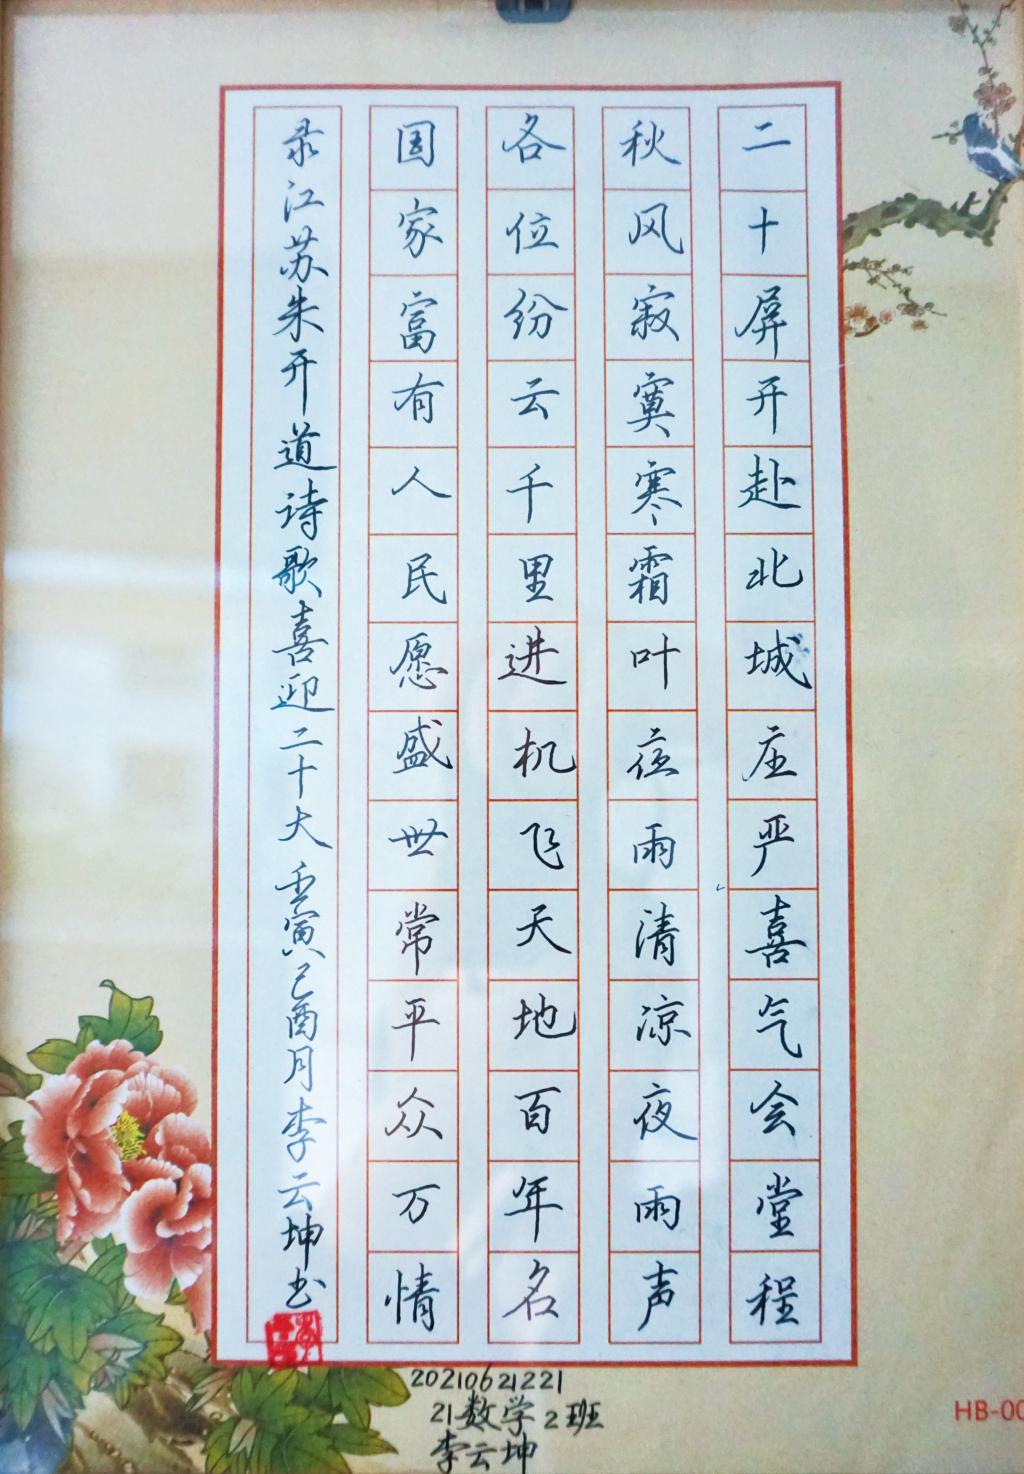 二十屏开赴北城庄严喜气会堂程
秋风寂寞寒霜叶夜雨清凉夜雨声
各位纷云千里进机飞天地百年名
国家富有人民愿盛世常平众万情
录江苏朱开道诗歌喜迎二十大壬寅己酉月李云坤书
20210621221
21数学2班
李云坤
HB-00